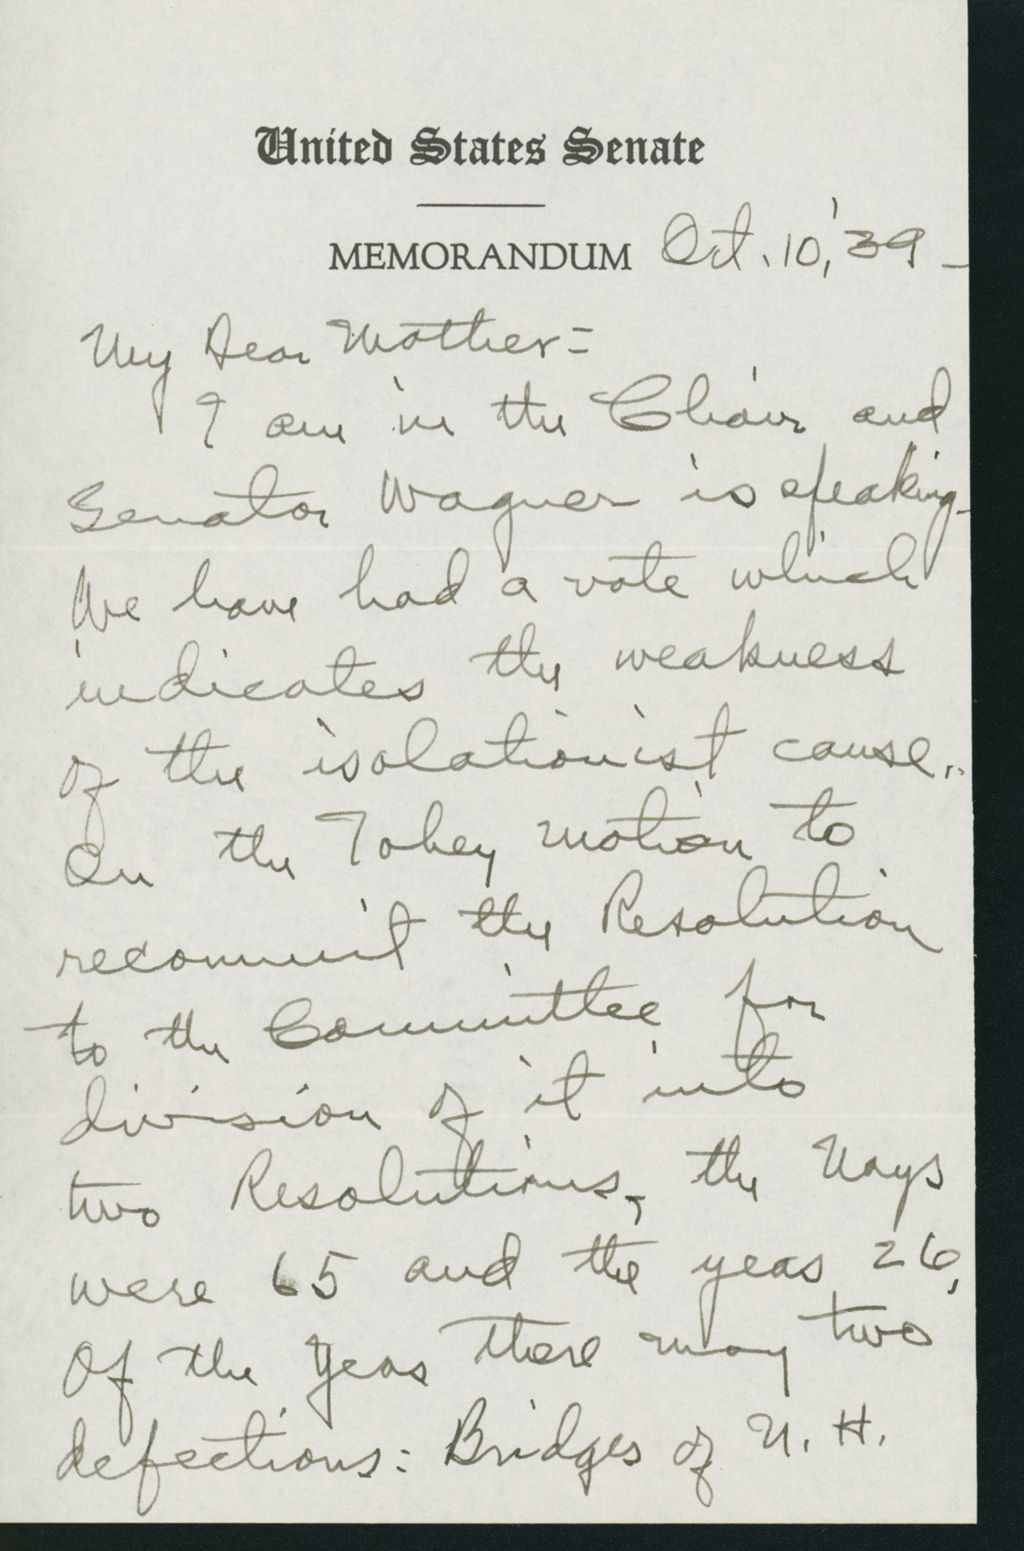 United States Senate
MEMORANDUM Oct. 10, '39 -
My Dear Mother =
I am in the Chair and
Senator Wagner is speaking -
We have had a vote which
indicates the weakness
of the isolationist cause.
On the Tobey motion to
recommit the Resolution
to the Committee for
division of it into
two Resolutions, the Nays
were 65 and the yeas 26,
Of the Yeas there may two
defections: Bridges of N. H.